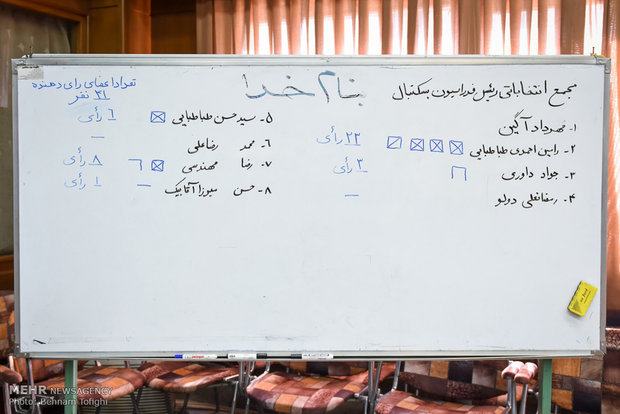 بنام خدا
مجمع انتخاباتی رئیس فدراسیون بسکتبال
تعداد اعضای رای دهنده
۳۱ نفر
۱- مهرداد آگین
۲- رامین احمدی طباطبایی ۲۲ رأی
۳- جواد داوری ۳ رأی
۴- رمضانعلی دولو —
۵- سید حسن طباطبایی ۶ رأی
۶- محمد رضا علی —
۷- رضا مهندسی ۸ رأی
۸- حسن میرزا آقابیک — ۱ رأی
MEHR NEWSAGENCY
Photo: Behnam Tofighi